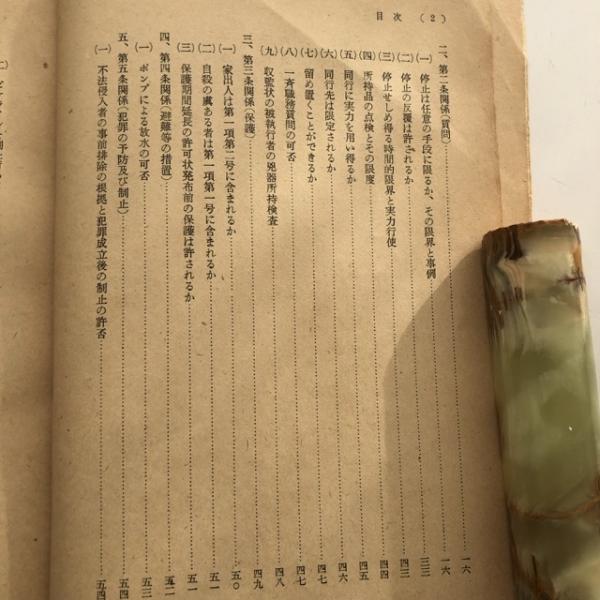 目次 (2)
二、第二条関係(質問)……一六
(一) 停止は任意の手段に限るか、その限界と事例……一六
(二) 停止の反覆は許されるか……三三
(三) 停止せしめ得る時間的限界と実力行使……四三
(四) 所持品の点検とその限度……四四
(五) 同行に実力を用い得るか……四五
(六) 同行先は限定されるか……四六
(七) 留め置くことができるか……四七
(八) 一斉職務質問の可否……四七
(九) 収監状の被執行者の兇器所持検査……四八
三、第三条関係(保護)……四九
(一) 家出人は第一項第二号に含まれるか……五〇
(二) 自殺の虞ある者は第一項第一号に含まれるか……五一
(三) 保護期間延長の許可状発布前の保護は許されるか……五一
四、第四条関係(避難等の措置)……五二
(一) ポンプによる放水の可否……五三
五、第五条関係(犯罪の予防及び制止)……五四
(一) 不法侵入者の事前排除の根拠と犯罪成立後の制止の許否……五四